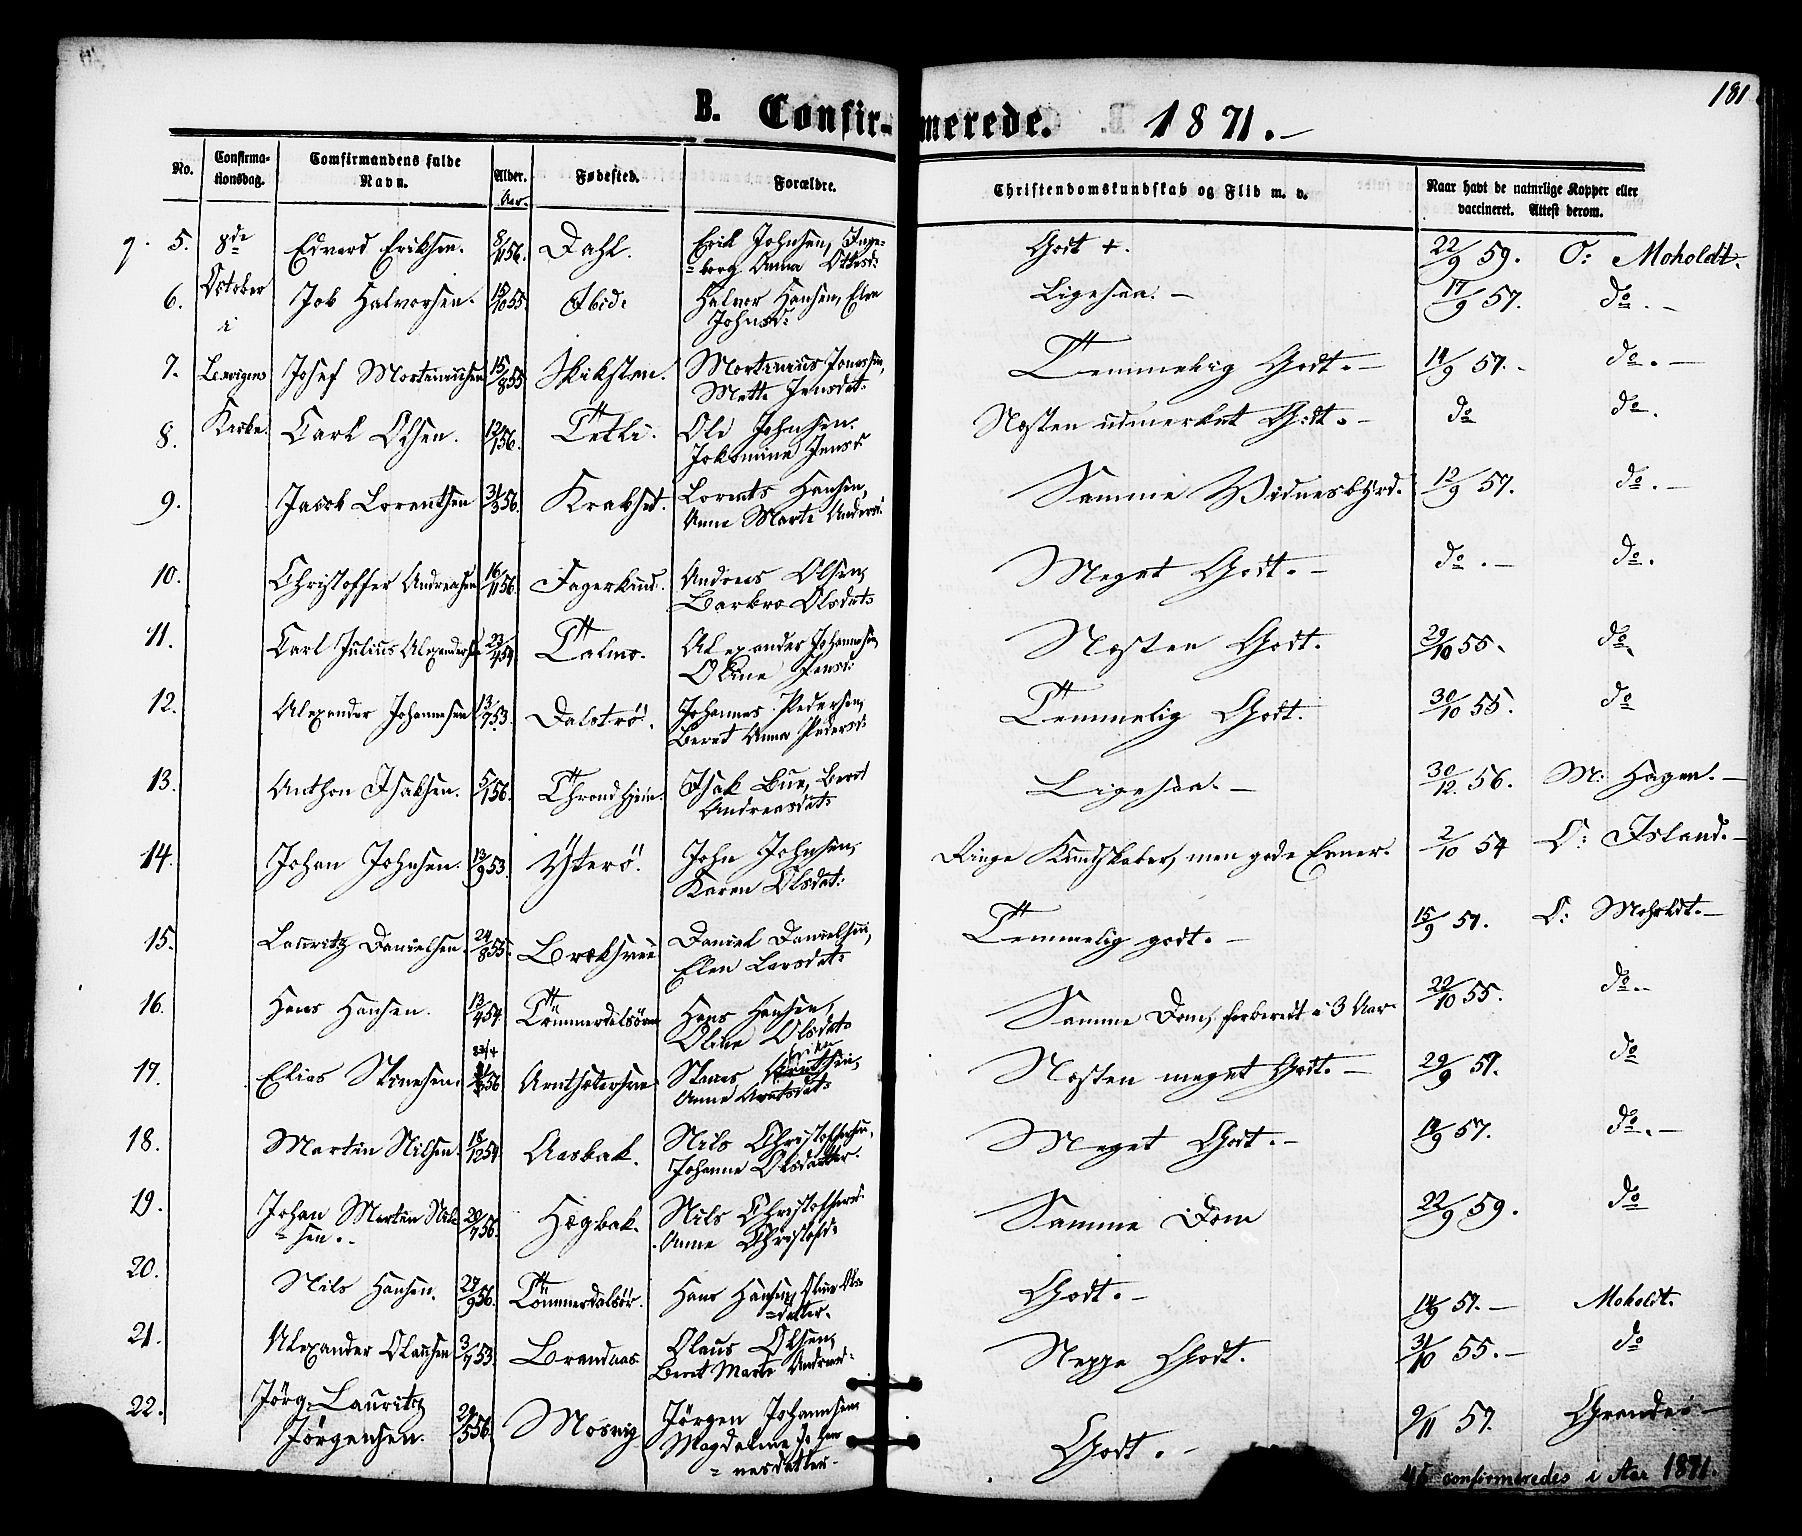 181
B. Confirmerede. 1871.
No. Confirmationsdag. Comfirmandens fulde Navn. Alder. Aar. Fødested. Forældre. Christendomskundskab og Flid m. v. Naar havt de naturlige Kopper eller vaccineret. Attest derom.
5. 8de October i Lexvigens Kirke Edvard Eriksen. 8/11 56. Dahl. Erik Johnsen, Ingeborg Anna Godt +. 22/9 59. O: Moholdt.
6. Job Halvorsen. 18/10 55. Ibid: Halvor Hansen, Elen Johnsd: Ligesaa. — 17/9 57. do. —
7. Josef Martinussen 15/8 55 Martinius Jonassen, Mette Jensdat: Temmelig Godt. — 14/9 57. - do. —
8. Carl Olsen. 12/1 56. Tetli. Ole Johnsen. Jokomine Jensd: Næsten udmerket Godt. — do do.
9. Jacob Lorentsen 31/3 56. Krakset. Lorents Hansen, Anne Marte Andersd: Samme Vidnesbyrd. 12/9 57. do. —
10. Christoffer Andreasen 16/11 56. Andreas Olsen, Barbro Olsdat: Meget Godt. — do. — do.
11. Carl Julius Alexandersen 23/4 54 Talmo. Alexander Johannesen, Oline Jensd: Næsten Godt. 29/10 55. do.
12. Alexander Johannesen 13/7 53. Dalströ. Johannes Pedersen, Beret Anna Pedersd: Temmelig Godt. 30/10 55. do
13. Anthon Isaksen. 5/1 56. Throndhjem. Isak Bue, Beret Andreasdat: Ligesaa. — 30/12. 56. M: Hagen. —
14. Johan Johnsen. 13/9 53. Ytterö. John Johnsen, Karen Olsdat: Ringe Kundskaber, men gode Evner. 2/10 54 O: Island. —
15. Lauritz Danielsen. 24/8 55. Daniel Danielsen, Elen Larsdat: Temmelig godt. — 15/9 57. O: Moholdt. —
16. Hans Hansen. 13/4 54. Tømmerdalsören Hans Hansen, Oline Olsdat: Samme Dom, forberedt i 3 Aar. 22/10 55. do. -
17. Elias Stinesen. 56 Anne Arntsdat: Næsten meget Godt. — 29/9 57. do
18. Martin Nilsen. 18/12 54 Aasbak. Nils Christoffersen, Johanne Olsdatter. Meget Godt. — 14/9 57. do. —
19. Johan Martin Nilssen. - 20/7 56. Hægbak. Nils Christoffers: Anne Christofd: Samme Dom 22/9 59. do
20. Nils Hansen. 27/9 56. Tömmerdalsör. Hans Hansen, Oline Olsdatter. Godt. — 14/9 57. — Moholdt.
21. Alexander Olaussen 3/7 53. Brandaas Olaus Olsen, Beret Marte Andreasd: Neppe Godt. 31/10 55. — do
22. Jörg. Lauritz Jörgensen. 29/5 56. Mosvig Jörgen Johannesen Magdalene Johannesdatter. Godt. — 9/11 57. Grande: —
45 confirmeredes i Aar 1871.